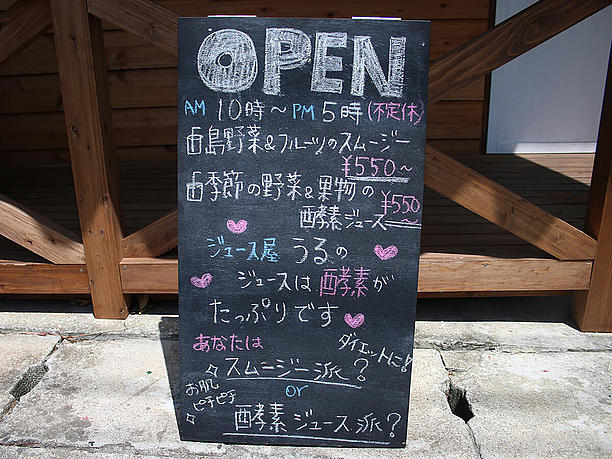 OPEN
AM 10時〜PM 5時(不定休)
島野菜&フルーツのスムージー
¥550〜
季節の野菜&果物の
酵素ジュース ¥550〜
ジュース屋 うるの
ジュースは酵素が
たっぷりです
あなたは ダイエットに!
スムージー派?
お肌
ピチピチ
or
酵素ジュース派?